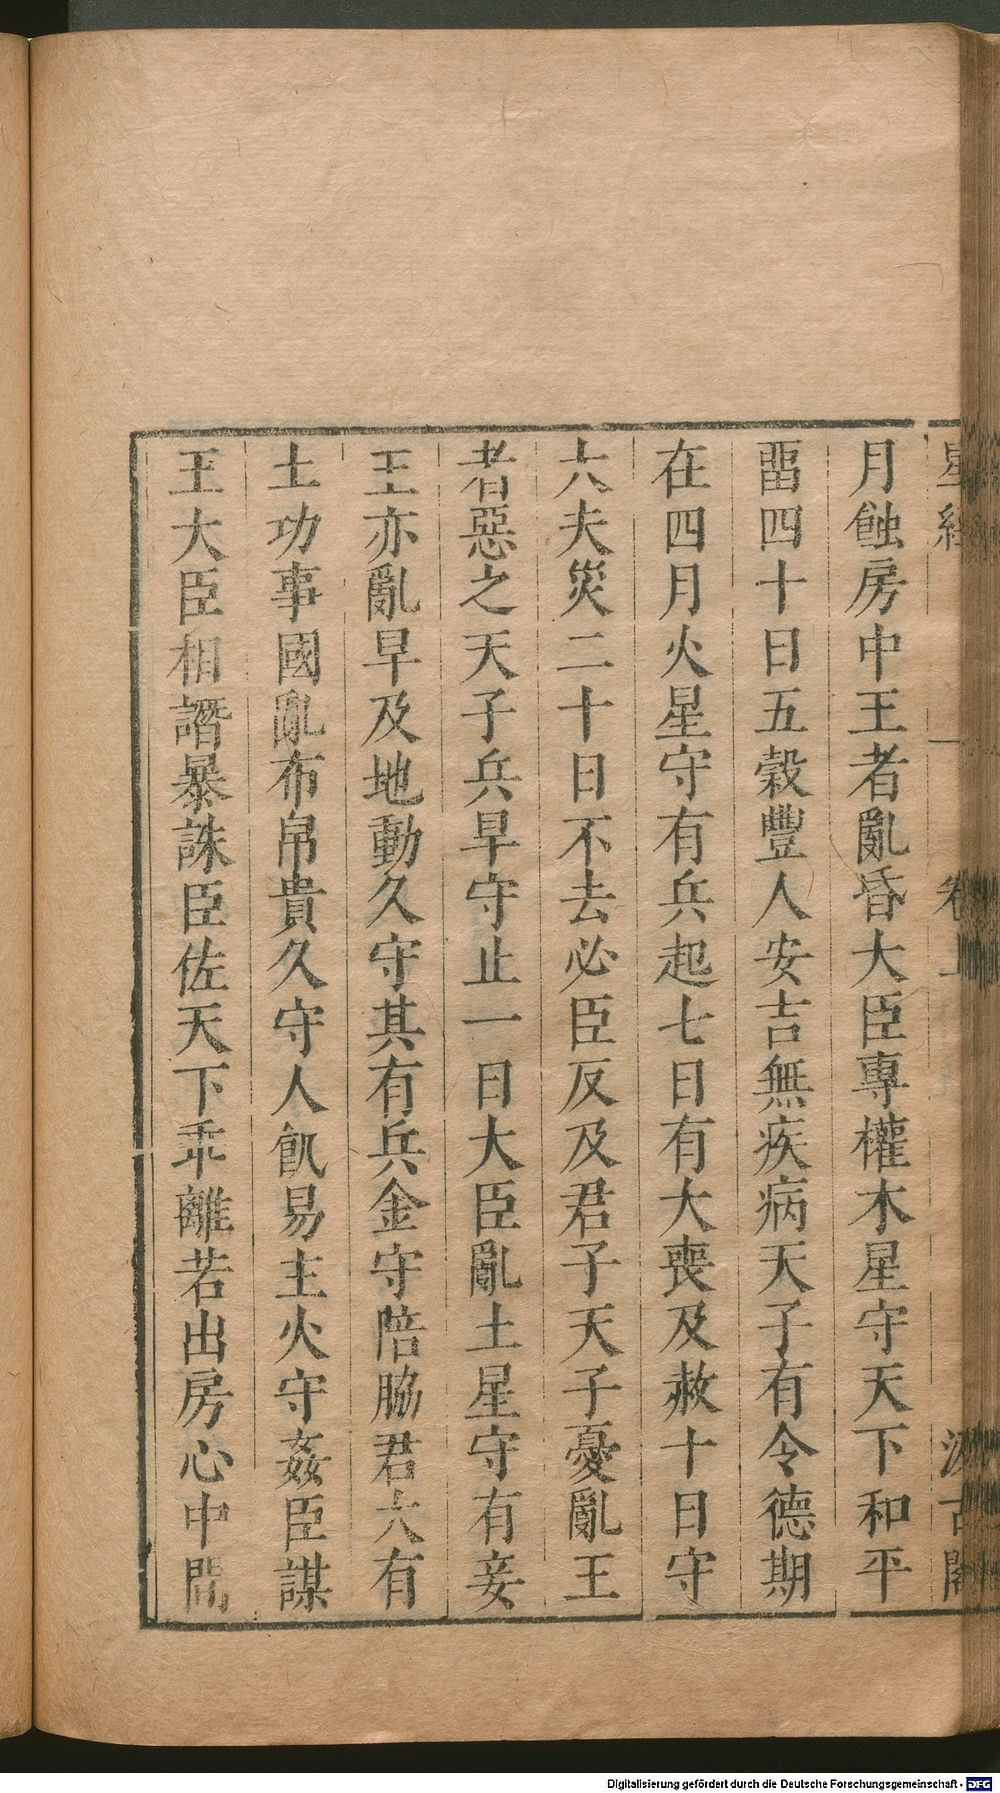 星經 卷上 汲古閣
月蝕房中王者亂昏大臣專權木星守天下和平
畱四十日五穀豐人安吉無疾病天子有令德期
在四月火星守有兵起七日有大喪及赦十日守
大夫災二十日不去必臣反及君子天子憂亂王
者惡之天子兵早守止一日大臣亂土星守有妾
王亦亂早及地動久守其有兵金守陪脇君大有
土功事國亂布帛貴久守人飢易主火守姦臣謀
王大臣相譖暴誅臣佐天下乖離若出房心中間
Digitalisierung gefördert durch die Deutsche Forschungsgemeinschaft - DFG